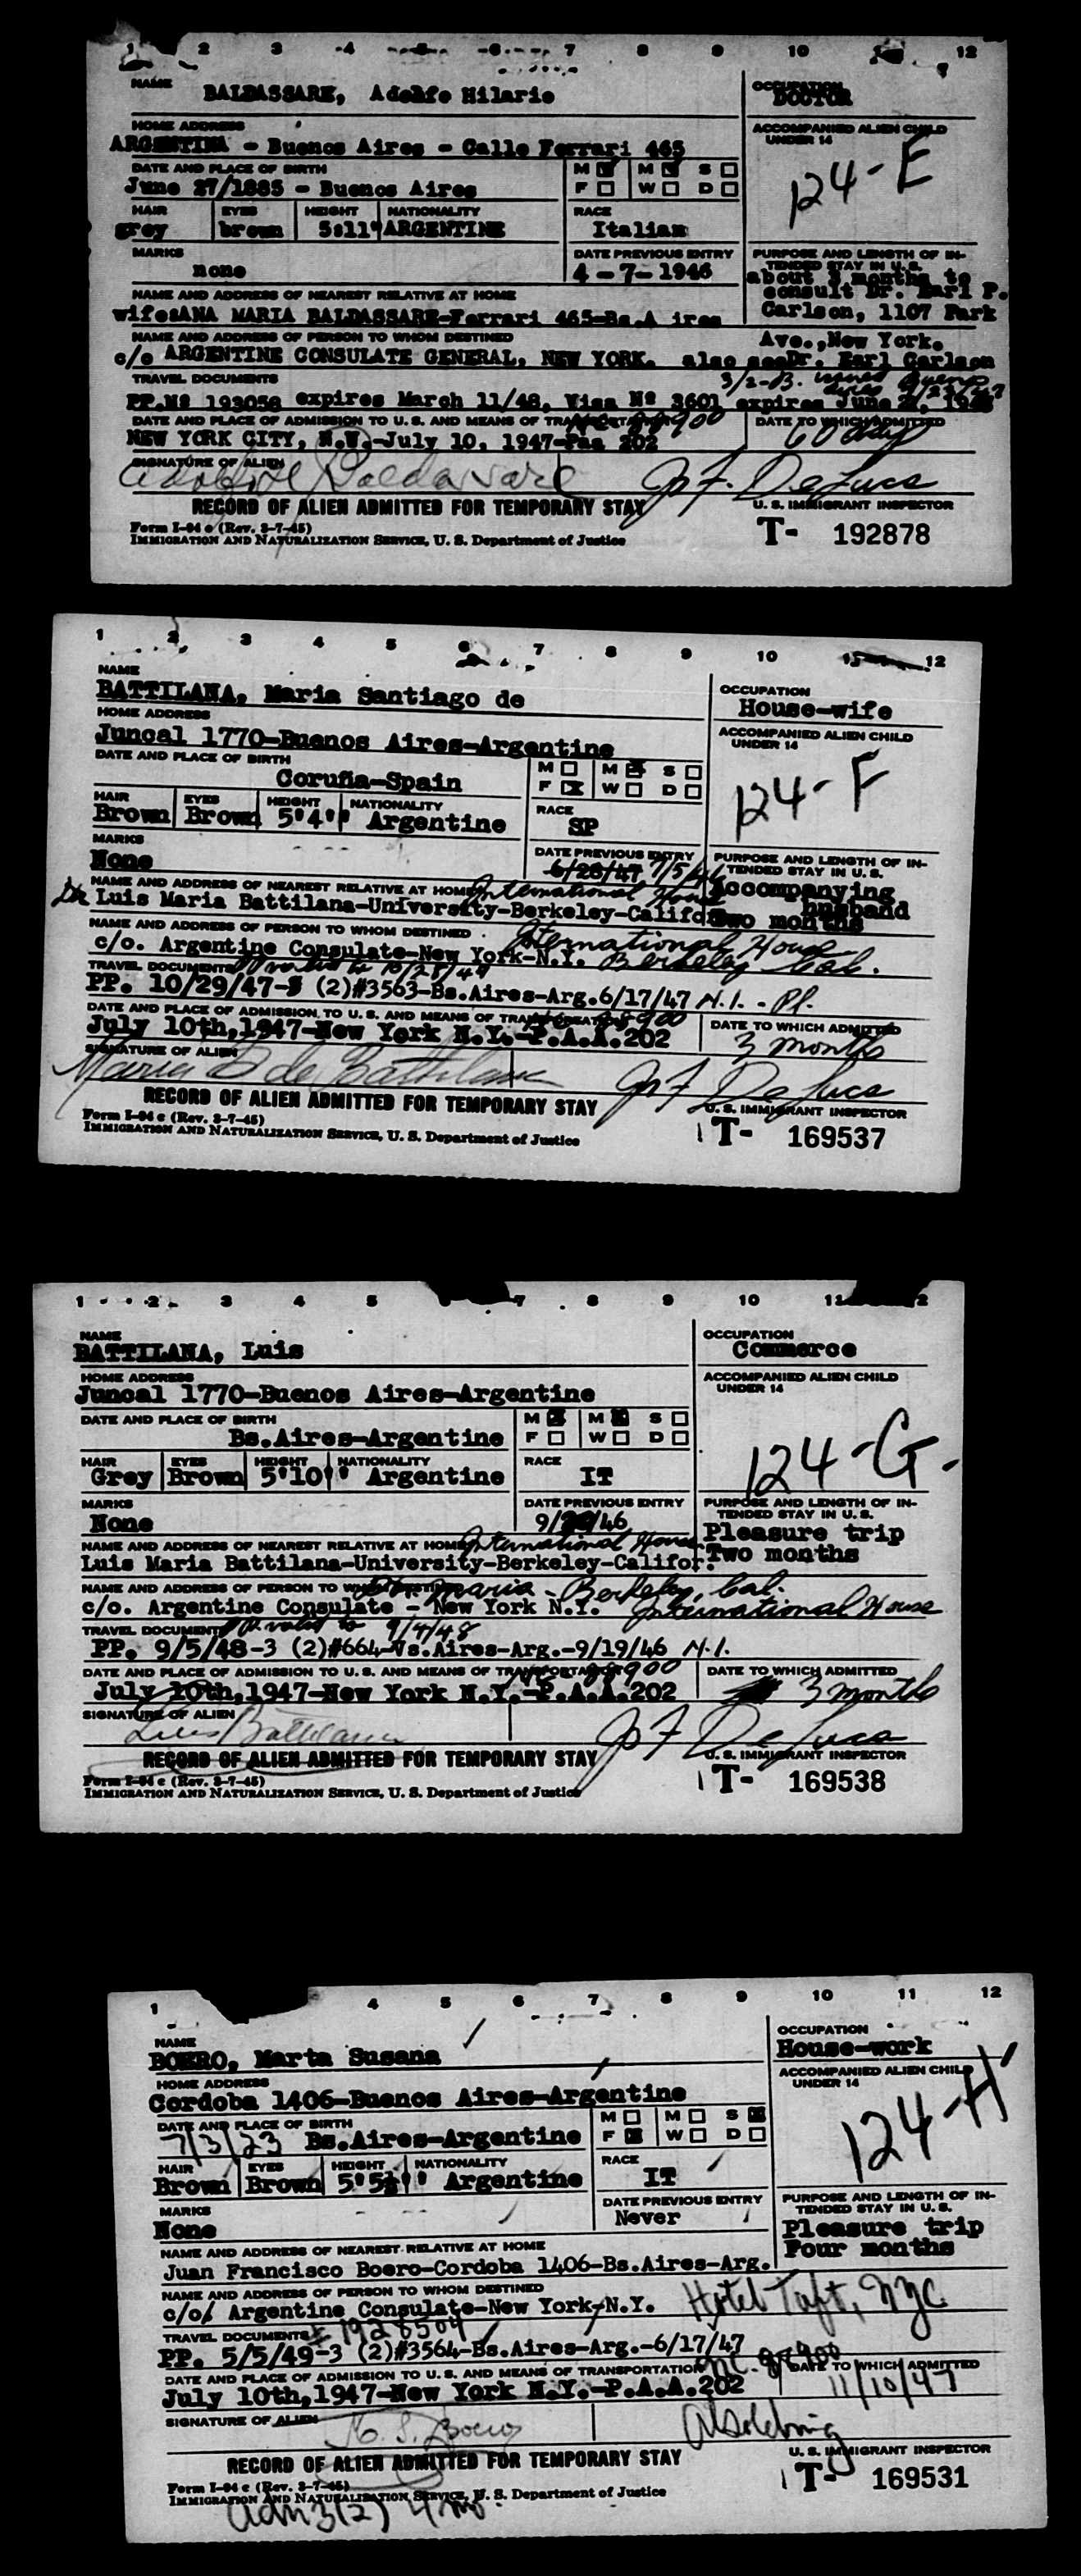 1 2 3 4 5 6 7 8 9 10 12
NAME
BALDASSARE, Adolfo Hilario
OCCUPATION
DOCTOR
HOME ADDRESS
ARGENTINA - Buenos Aires - Calle Ferrari 465
ACCOMPANIED ALIEN CHILD UNDER 14
124-E
DATE AND PLACE OF BIRTH
June 27/1885 - Buenos Aires
M M S
F W D
HAIR EYES HEIGHT NATIONALITY RACE
grey brown 5:11" ARGENTINE Italian
MARKS
none
DATE PREVIOUS ENTRY
4-7-1946
PURPOSE AND LENGTH OF INTENDED STAY IN U. S.
about 3 months to
consult Dr. Earl P.
Carlson, 1107 Park
Ave., New York.
NAME AND ADDRESS OF NEAREST RELATIVE AT HOME
wife:ANA MARIA BALDASSARE-Ferrari 465-Bs.A ires
NAME AND ADDRESS OF PERSON TO WHOM DESTINED
c/o ARGENTINE CONSULATE GENERAL, NEW YORK. also see Dr. Earl Carlson
TRAVEL DOCUMENTS
3/2-B. issued Buenos
PP.Nº 193058 expires March 11/48, Visa Nº 3601 expires June
DATE AND PLACE OF ADMISSION TO U. S. AND MEANS OF TRANSPORTATION
NEW YORK CITY, N.Y.-July 10, 1947-Paa 202
DATE TO WHICH ADMITTED
60 day
SIGNATURE OF ALIEN
Adolfo H Baldassare
J F. DeLuca
RECORD OF ALIEN ADMITTED FOR TEMPORARY STAY
U. S. IMMIGRANT INSPECTOR
Form I-94 c (Rev. 3-7-45)
IMMIGRATION AND NATURALIZATION SERVICE, U. S. Department of Justice
T- 192878
1 2 3 4 5 6 7 8 9 10 12
NAME
BATTILANA, Maria Santiago de
OCCUPATION
House-wife
HOME ADDRESS
Juncal 1770-Buenos Aires-Argentine
ACCOMPANIED ALIEN CHILD UNDER 14
124-F
DATE AND PLACE OF BIRTH
Coruña-Spain
M M S
F W D
HAIR EYES HEIGHT NATIONALITY RACE
Brown Brown 5'4" Argentine SP
MARKS
None
DATE PREVIOUS ENTRY
6/28/47 7/5/46
PURPOSE AND LENGTH OF INTENDED STAY IN U. S.
Accompanying
husband
Two months
NAME AND ADDRESS OF NEAREST RELATIVE AT HOME
International House
Dr Luis Maria Battilana-University-Berkeley-Califor
NAME AND ADDRESS OF PERSON TO WHOM DESTINED
International House
c/o. Argentine Consulate-New York-N.Y. Berkeley Cal.
TRAVEL DOCUMENTS
PP valid to 10/28/47
PP. 10/29/47-3 (2)#3563-Bs.Aires-Arg.6/17/47 N.I. - Pl.
DATE AND PLACE OF ADMISSION TO U. S. AND MEANS OF TRANSPORTATION
July 10th,1947-New York N.Y.-P.A.A.202
DATE TO WHICH ADMITTED
3 months
SIGNATURE OF ALIEN
Maria S de Battilana
J F DeLuca
RECORD OF ALIEN ADMITTED FOR TEMPORARY STAY
U. S. IMMIGRANT INSPECTOR
Form I-94 c (Rev. 3-7-45)
IMMIGRATION AND NATURALIZATION SERVICE, U. S. Department of Justice
1 T- 169537
1 2 3 4 5 7 8 9 10
NAME
BATTILANA, Luis
OCCUPATION
Commerce
HOME ADDRESS
Juncal 1770-Buenos Aires-Argentine
ACCOMPANIED ALIEN CHILD UNDER 14
124-G.
DATE AND PLACE OF BIRTH
Bs.Aires-Argentine
M M S
F W D
HAIR EYES HEIGHT NATIONALITY RACE
Grey Brown 5'10" Argentine IT
MARKS
None
DATE PREVIOUS ENTRY
9/ /46
PURPOSE AND LENGTH OF INTENDED STAY IN U. S.
Pleasure trip
Two months
NAME AND ADDRESS OF NEAREST RELATIVE AT HOME
International House
Luis Maria Battilana-University-Berkeley-Califor.
NAME AND ADDRESS OF PERSON TO WHOM DESTINED
Maria - Berkeley, Cal.
c/o. Argentine Consulate - New York N.Y. International House
TRAVEL DOCUMENTS
PP valid to 9/4/48
PP. 9/5/48-3 (2)#664-Vs.Aires-Arg.-9/19/46 N.I.
DATE AND PLACE OF ADMISSION TO U. S. AND MEANS OF TRANSPORTATION
July 10th,1947-New York N.Y.-P.A.A.202
DATE TO WHICH ADMITTED
3 months
SIGNATURE OF ALIEN
Luis Battilana
J F DeLuca
RECORD OF ALIEN ADMITTED FOR TEMPORARY STAY
U. S. IMMIGRANT INSPECTOR
Form I-94 c (Rev. 3-7-45)
IMMIGRATION AND NATURALIZATION SERVICE, U. S. Department of Justice
1 T- 169538
1 4 5 6 7 8 9 10 11 12
NAME
BOERO, Marta Susana
OCCUPATION
House-work
HOME ADDRESS
Cordoba 1406-Buenos Aires-Argentine
ACCOMPANIED ALIEN CHILD UNDER 14
124-H
DATE AND PLACE OF BIRTH
7/3/23 Bs.Aires-Argentine
M M S
F W D
HAIR EYES HEIGHT NATIONALITY RACE
Brown Brown 5'5½" Argentine IT
MARKS
None
DATE PREVIOUS ENTRY
Never
PURPOSE AND LENGTH OF INTENDED STAY IN U. S.
Pleasure trip
Four months
NAME AND ADDRESS OF NEAREST RELATIVE AT HOME
Juan Francisco Boero-Cordoba 1406-Bs.Aires-Arg.
NAME AND ADDRESS OF PERSON TO WHOM DESTINED
c/o/ Argentine Consulate-New York-N.Y. Hotel Taft, NYC
TRAVEL DOCUMENTS
1928504
PP. 5/5/49-3 (2)#3564-Bs.Aires-Arg.-6/17/47
DATE AND PLACE OF ADMISSION TO U. S. AND MEANS OF TRANSPORTATION
July 10th,1947-New York N.Y.-P.A.A.202
DATE TO WHICH ADMITTED
11/10/47
SIGNATURE OF ALIEN
M. S. Boero
RECORD OF ALIEN ADMITTED FOR TEMPORARY STAY
U. S. IMMIGRANT INSPECTOR
Form I-94 c (Rev. 3-7-45)
IMMIGRATION AND NATURALIZATION SERVICE, U. S. Department of Justice
1 T- 169531
adm 3(2) 4 mo.